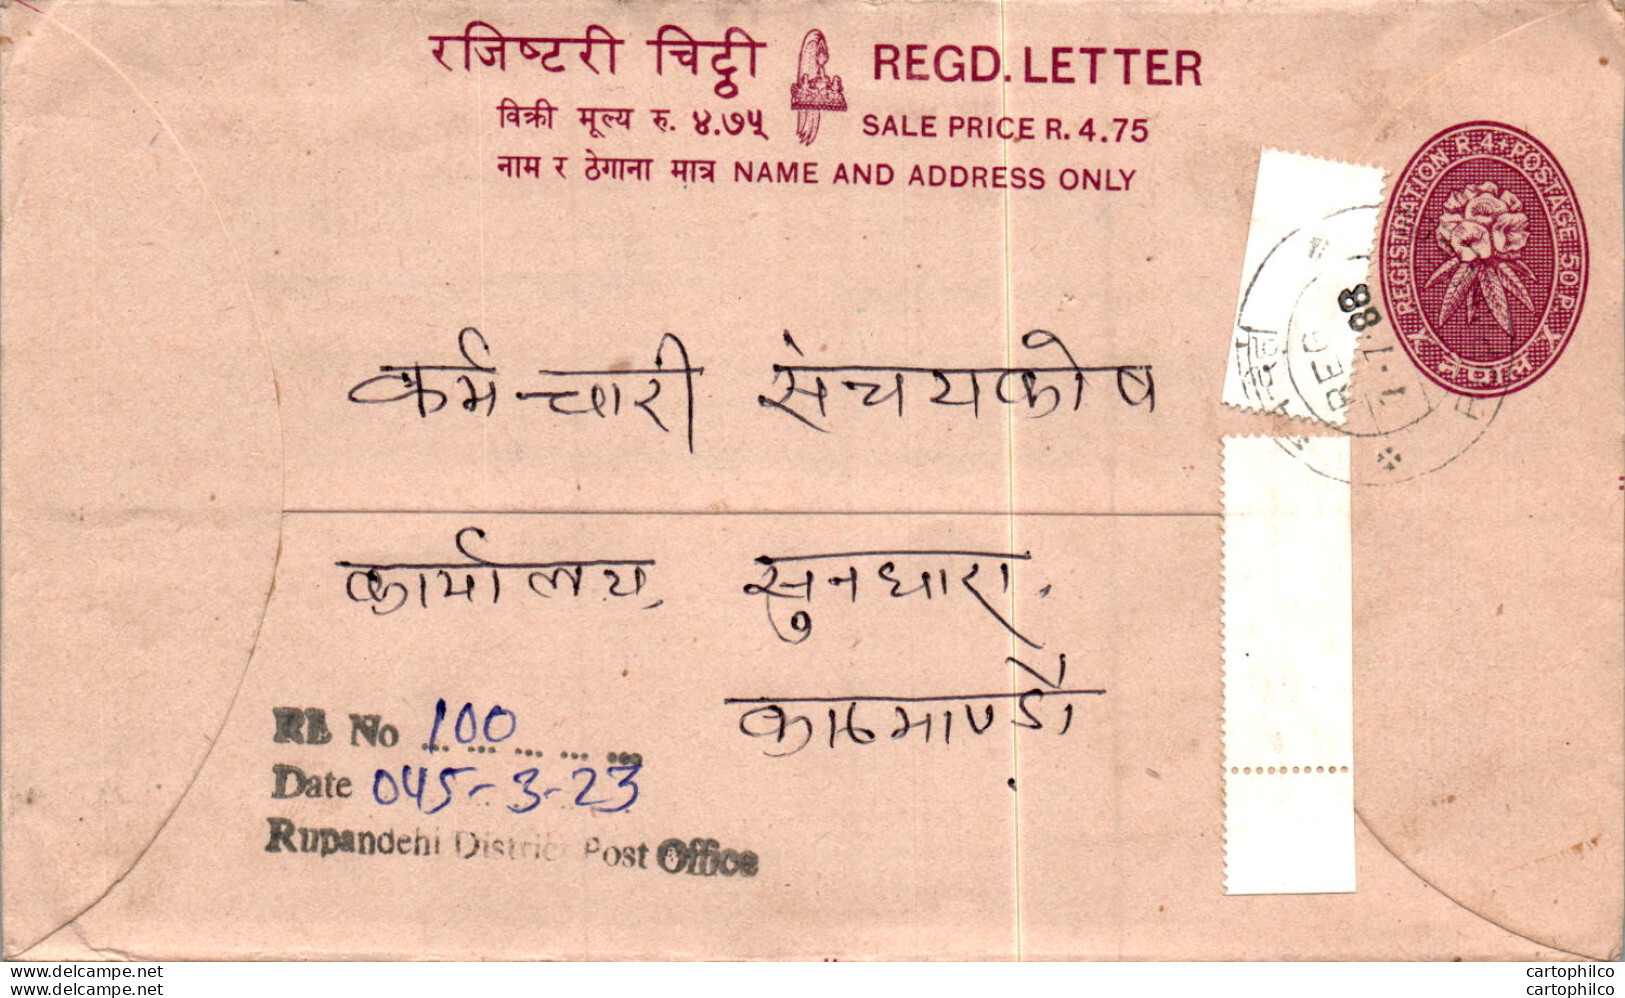 रजिष्टरी चिट्ठी REGD. LETTER
विक्री मूल्य रु. ४.७५ SALE PRICE R. 4.75
नाम र ठेगाना मात्र NAME AND ADDRESS ONLY
REGISTRATION R 4+POSTAGE 50 P.
नेपाल
REG
88
1-7-
कर्मचारी संचयकोष
कार्यालय, सुनधारा.
काठमाण्डौ
RL No 100
Date 045-3-23
Rupandehi District Post Office
delcampe.net
delcampe.net
cartophilco
cartophilco